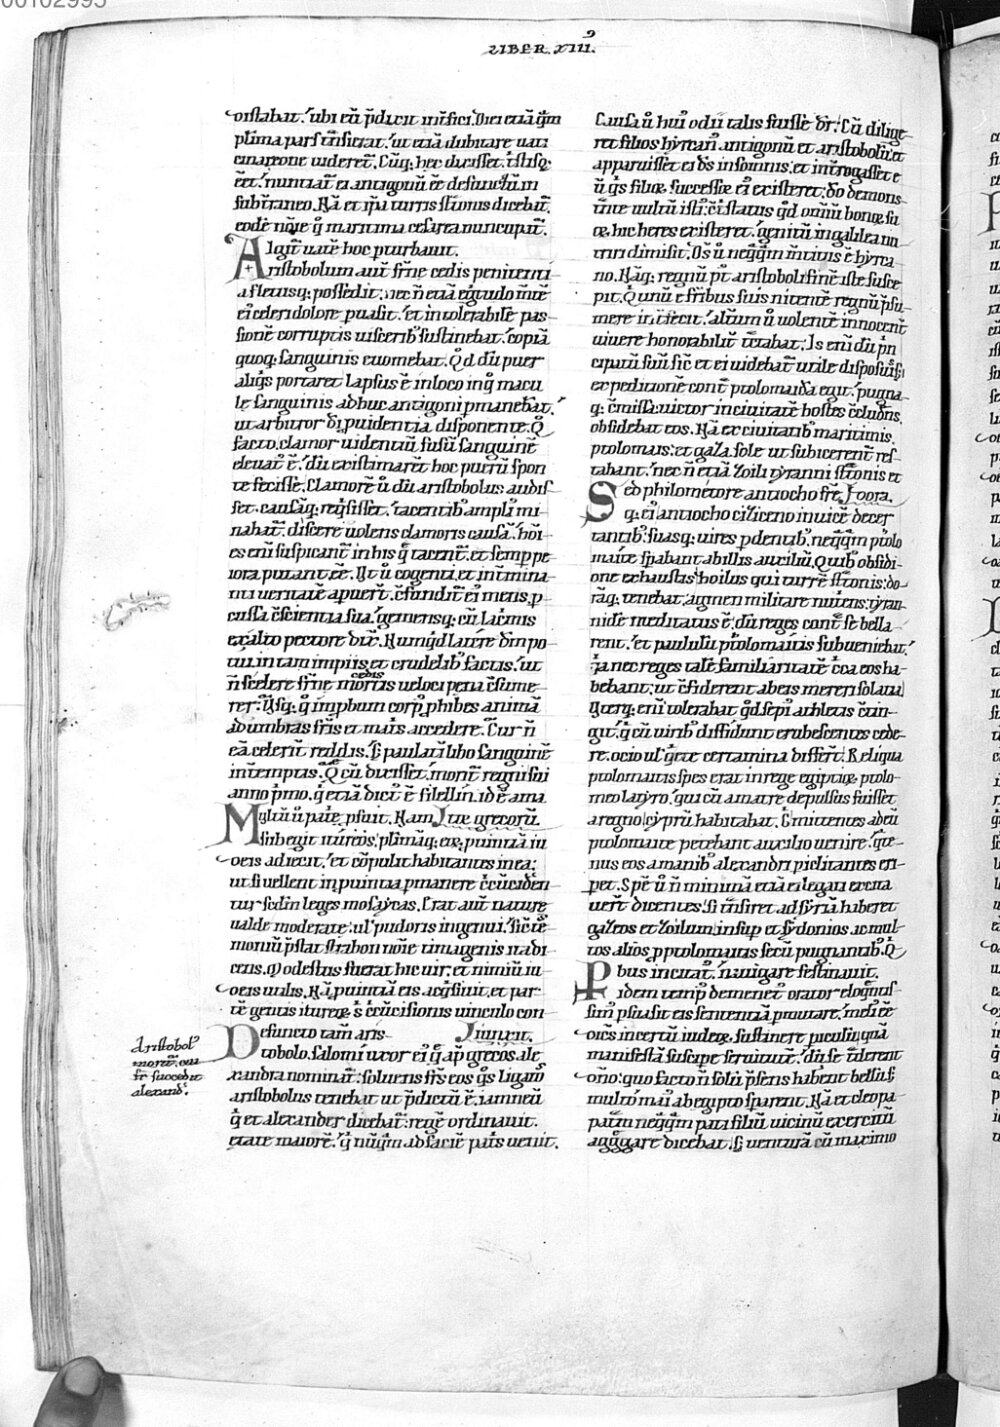 00102995
LIBER. XIIIꝰ.
distabat. ubi eū p̄dixit int̄fici. Diei etiā q̄m
plima pars t̄nsierat. ut etiā dubitare uati
cinatione uideret̄. Cūq; hec duxisset. t̄stisq;
eēt. nuntiat̄ ei antigonū eē defunctūm
subt̄raneo. Nā et ip̄a turris st̄tonis dicebat̄.
eodē nōīe q̄ maritima cesarea nuncupat̄.
Algit̄ uatē hoc pturbauit.
ristobolum aut̄ fr̄ne cedis penitenti
a fletusq; possedit. nec n̄ etiā egtudo m̄te
ei celeri dolore puasit. et intolerabile pas
sionē corruptis uiscerib; sustinebat. copiā
quoq; sanguinis euomebat. Qd dū puer
aliq̄s portaret lapsus ē in loco in q̄ macu
le sanguinis adhuc antigoni pmanebat.
ut arbitror dī puidentia disponente. Q̄
facto. clamor uidentiū fusū sanguinē
eleuat̄ ē. dū existimarēt hoc puerū spon
te fecisse. Clamorē ū dū aristobolus audis
set. causāq; req̄sisset. tacentib; ampli mi-
nabat̄. discere uolens clamoris causā. hōi-
es enī suspicant̄ in his q̄ tacent̄. et semp pe
iora putant eē. Vt ū cogenti. et int̄mina-
nti ueritatē apuert̄. c̄fundit̄ ei mens. p
cussa c̄scientia sua. gemensq; cū lac̄mis
ex alto pectore dix̄. Numq̄d latēre dm̄ po-
tui. in tam impiis et crudelib; factis. ut
n̄ scelere fr̄ne cedis mortis ueloci pena c̄sume-
rer. Vsq; q̄ imp̄bum corp; phibes animā
ad umbras fr̄is et mat̄s accedere. Cur n̄
eā celerit̄ reddis. S; paulatī libo sanguinē
int̄emptis. Q̄ cū dixisset. mort̄ regni sui
anno pmo. q̄ etiā dict̄ ē filellin. id ē ama
Multū ū pat̄e. psuit. Nam Jtor grecorū.
subegit itureos. plimāq; ex puintia iu
deis adiecit. et c̄pulit habitantes in ea.
ut si uellent in puintia pmanere c̄cuciden
tur sed in leges mosaycas. Erat aut̄ nature
ualde moderate. ul pudoris ingenui. sic̄ te
moniū p̄stat strabon noīe timagenis ita di
cens. Modestus fuerat hic uir. et nimiū iu-
deis utilis. Nā puintiā eis acq̄siuit. et par-
tē gentis ituree. s; c̄cūcisionis uinculo con
Defuncto tam aris Jiunxit.
tobolo. salomi uxor ei q̄ ap̄ grecos ale
xandra nominat̄. soluens fr̄s eos q̄s ligatō
aristobolus tenebat ut p̄dictū ē. iamneū
q̄ et alexander dicebat̄. regē ordinauit.
etate maiorē. q̄ nūq̄m ad faciē pat̄s uenit.
Aristobol
mortē. cui
fr̄ succedit
alexand.
Causa ū hui odii talis fuisse dr̄. Cū dilige-
ret filios hyrcan̄ antigonū et aristobolū. et
apparuisset ei ds̄ in somnis. et int̄rogasset e
ū q̄s filioꝝ successor ei existeret. dō demons-
t̄nte uultū isti. c̄tristatus q̄d omniū bonoꝝ su
oꝝ. hic heres existeret. genitū in galilea nu
triri dimisit. Ds̄ ū neq̄q̄m m̄titus ē hyrca-
no. Nāq; regnū p̄t aristoboli finē iste susce
pit. Q unū e fr̄ibus suis nitentē regnū psu
mere int̄fecit. altm̄ ū uolentē innocent̄
uiuere honorabilit̄ tr̄ctabat. Is enī dū p̄n
cipatū suū sic̄ et ei uidebat̄ utile disposuiss;
expeditionē cont̄ ptolomaidā egit. pugna-
q; c̄missa. uictor in ciuitatē hostes c̄cludens.
obsidebat eos. Nā ex ciuitatib; maritimis.
ptolomais. et gaza. sole ut subicerent̄ res-
tabant. nec n̄ etiā zoili tyranni st̄tonis et
Sed philometore antiocho fr̄e. Jdora.
q; ei antiocho ciziceno inuicē decer
tantib; suasq; uires pdentib; neq̄q̄m ptolo
maite spabant ab illis auxiliū. Quib; obsidi-
one exhaustis zoilus qui turrē st̄tonis. do-
rāq; tenebat. agmen militare nut̄iens. tyran-
nidē meditatus ē. dū reges cont̄ se bella
rent. et paululū ptolomaitis subueniebat.
ia nec reges talē familiaritatē c̄ca eos ha-
bebant. ut c̄fiderent ab eis mereri solatiū
Vterq; enī tolerabat q̄d sepi athletis c̄tin-
git. q̄ cū uirib; diffidunt erubescentes cede-
re. ocio ul q̄ete certamina differt̄. Reliqua
ptolomaitis spes erat in rege egiptioꝝ ptolo-
meo latyro. qui cū a matre depulsus fuisset
a regno cyprū habitabat. S; mittentes ad eū
ptolomaite petebant auxilio uenire. q̄te-
nus eos a manib; alexandri piclitantes eri-
pet. Spē ū n̄ minimā etiā ei legati excita
uert̄ dicentes. si t̄nsiret ad syriā haberet
gazeos et zoilum insup et sydonios. ac mul-
tos alios p ptolomaitis secū pugnantib; Q
Pbus incitat̄. nauigare festinauit.
idem temp̄ demenet orator eloq̄nsū
sim̄ psuasit eis sententiā pmutare. meli eē
dicēs incertū iudex sustinere piculū. quā
manifestā suscipe seruitutē. dn̄se t̄derent
dn̄o. quo facto n̄ solū p̄sens haber̄t bellū s;
multo mai ab egipto sparent. Nā et cleopa-
pat̄m neq̄q̄m pati filiū uicinū exercitū
aggregare dicebat. s; uenturā cū maximo